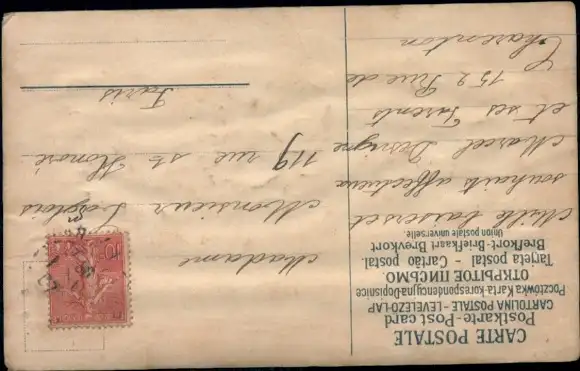 CARTE POSTALE
Postkarte - Post card
CARTOLINA POSTALE - LEVELEZŐ-LAP
Pocztówka-Karta korespondencyjna-Dopisnice
ОТКРЫТОЕ ПИСЬМО
Tarjeta postal - Cartão postal.
Brefkort-Briefkaart Brevkort
Union postale universelle.
Mille baisers et
souhaits affectueux
Marcel Devigne
et ses Parents
152 Rue de
Charenton
10
Madame
Monsieur Langlois
119 rue St Honoré
Paris